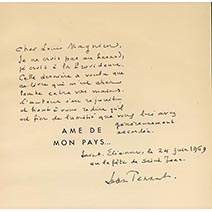 Cher Louis
je ne crois pas au hasard,
je crois à la Providence.
Cette dernière a voulu que
ce livre qui m'est cher
tombe entre vos mains.
L'auteur s'en réjouit
et tient à vous redire qu'il
est fier de l'amitié que vous lui avez
généreusement
accordée.
AME DE
MON PAYS...
Saint-Etienne, le 24 juin
en la fête de Saint Jean.